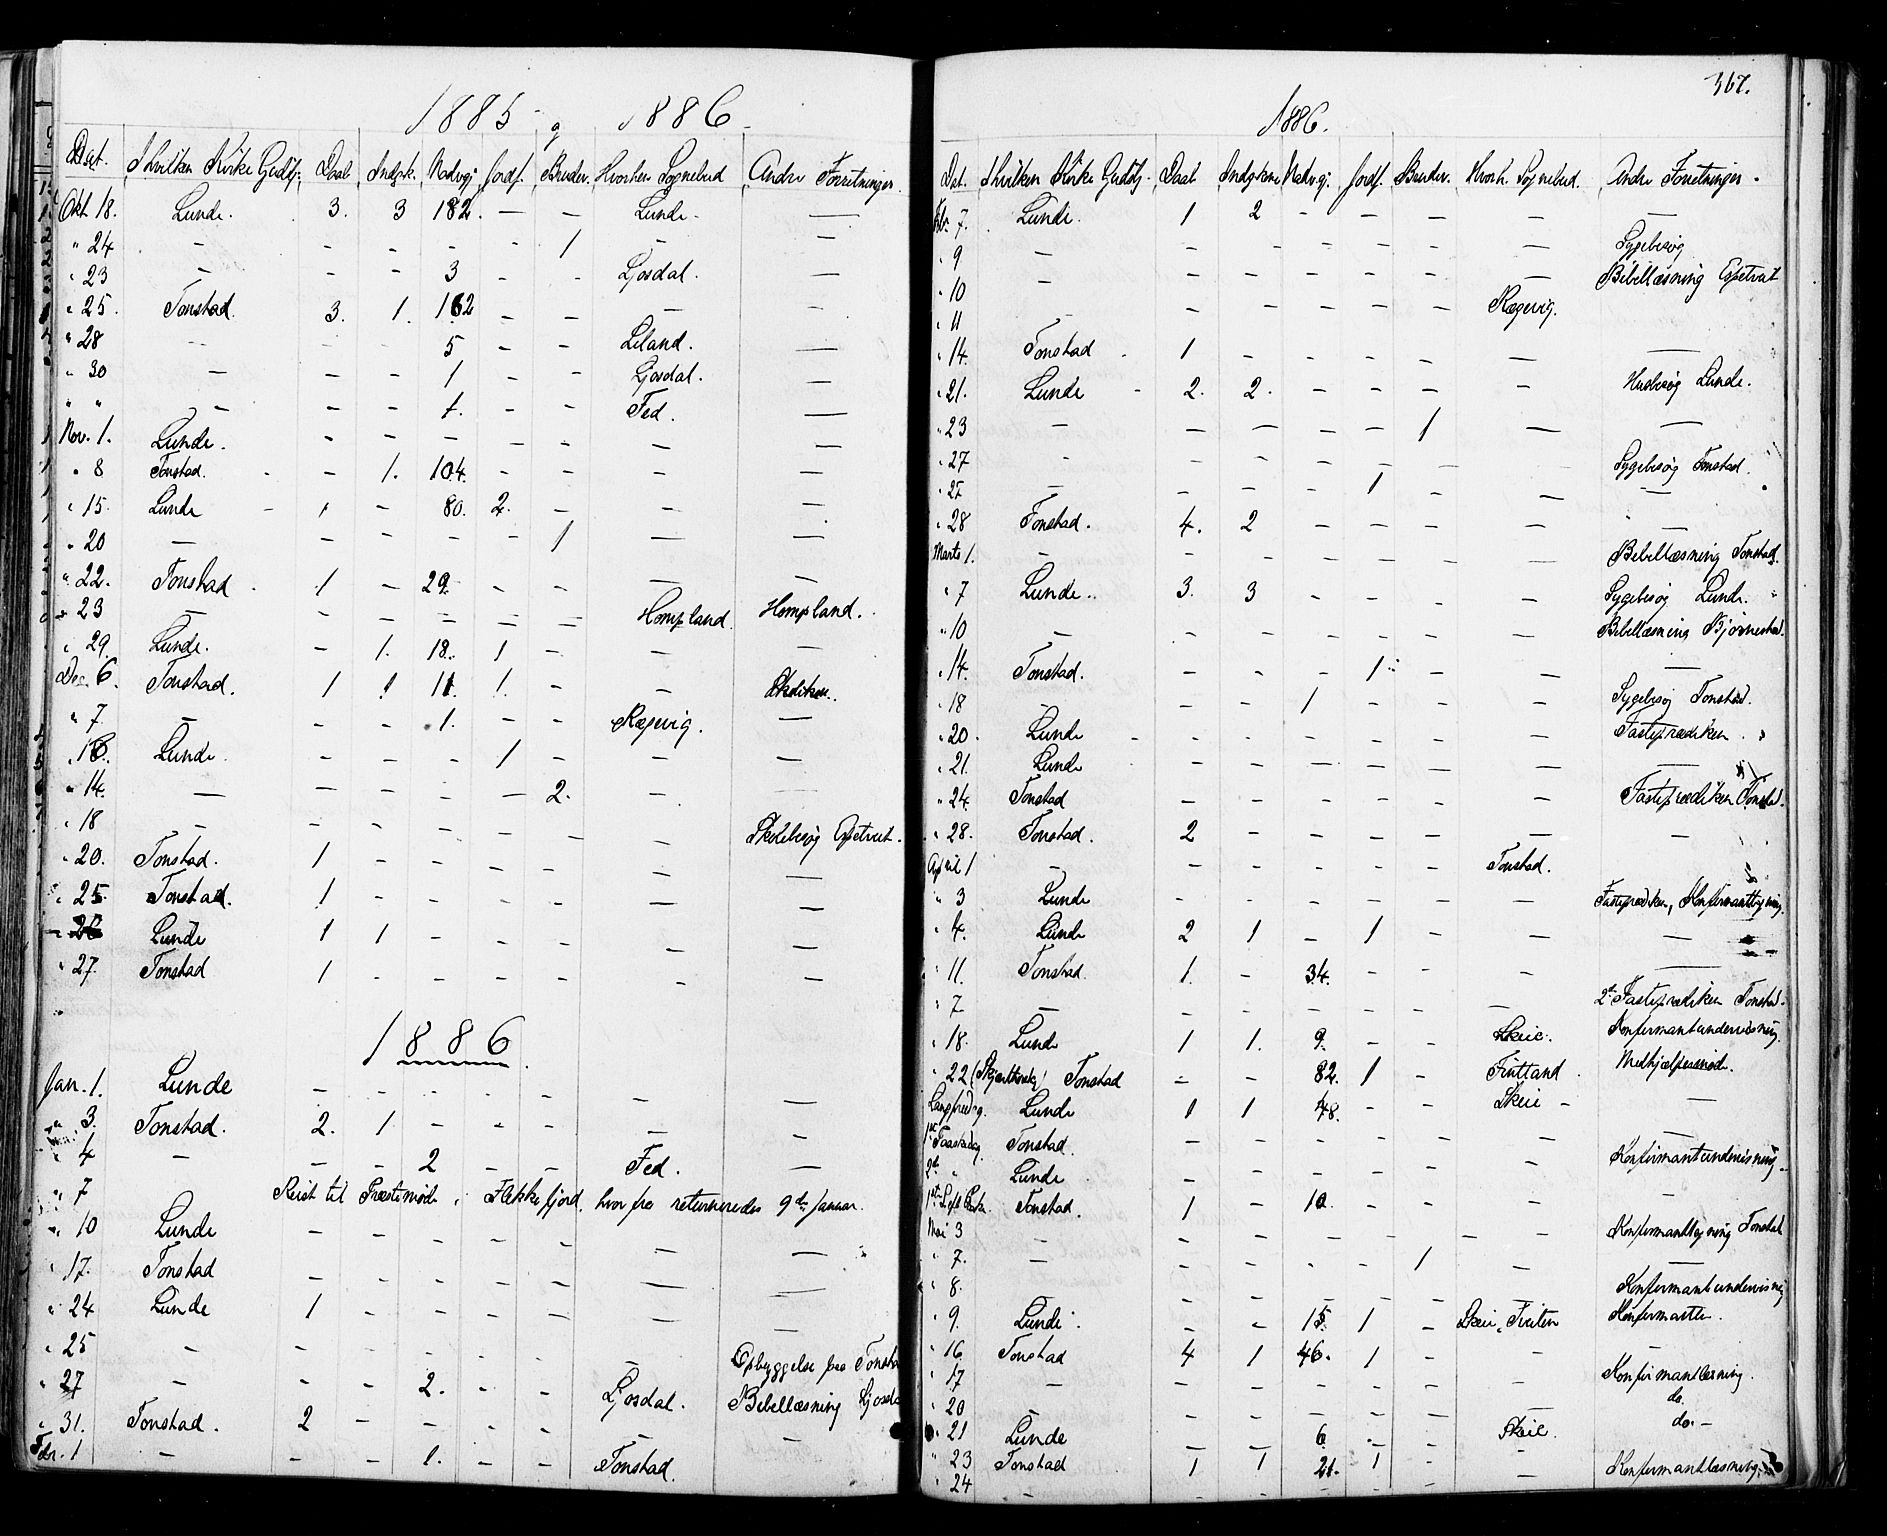 1885 og 1886.
Dat. I hvilken Kirke Gudstj. Daab Indgk. Nadvgj. Jordf. Bruder. Hvorhen Sognebud Andre Forretninger.
Okt 18. Lunde. 3. 3 182. — — Lunde. —
" 24 — — — — - 1 — —
" 23 — — — 3 - - Gjosdal. —
" 25. Tonstad. 3. 1. 162 — — — —
" 28 — — — 5 — — Liland. —
" 30 — — — 1 — - Gjosdal. —
" " — — — 1. — - Fed. —
Nov. 1. Lunde. — — — — — — —
" 8 Tonstad. — 1. 104. — — — —
" 15. Lunde 1 — 80. 2. — — —
" 20 — — — — — 1 — —
" 22. Tonstad 1 — 29. — — — —
" 23 — — — — — — Hompland. Hompland.
" 29. Lunde. — 1. 18. 1 — — —
Dec. 6. Tonstad. 1 1 11. 1. — —
" 7. — — — 1. — — Regevig. —
Lunde. — — — 1 — — —
" 14. — — — — — 2. — —
" 18 — — — — — — —
" 20. Tonstad. 1 — — — — — —
" 25. Tonstad. 1 — — — — — —
Lunde 1 1 — — — — —
" 27. Tonstad 1 — — — — — —
1886.
Jan. 1. Lunde — — — — — — —
" 3. Tonstad. 2. 1. — — — — —
" 4 — — — 2 — — Fed. —
" 7 Reist til Præstemøde i Flekkefjord, hvorfra returneredes 9de Januar.
" 10 Lunde — — — — — — —
" 17. Tonstad — — — — — — —
" 24 Lunde 1 — — — — — —
" 25 — — — — — — — Opbyggelse paa Tonsta
" 27 — — — 2. — — Gjosdal. Bibellæsning Gjosda
" 31. Tonstad. 2 — — — — — —
Febr. 1 — — — 1. — — Tonstad.
367.
1886.
Dat. I hvilken Kirke Gudstj. Daab Indgkone Nadvgj. Jordf. Bruder. Hvorh. Sognebud. Andre Forretninger.
Febr. 7. Lunde. 1 2 — — — — —
" 9 — — — — — — — Sygebesøg
" 10 — — — — — — — Bibellæsning
" 11 — — — — — — Regevig.
" 14. Tonstad 1 — — — — — —
" 21. Lunde 2. 2. — — — — Husbesøg Lunde.
" 23 — — — — — 1 — —
" 27 — — — — — — — Sygebesøg Tonstad.
" 27 — — — — 1 — — —
" 28 Tonstad. 4. 2 — — — — —
Marts 1. — — — — — — — Bibellæsning Tonstad.
" 7 Lunde. 3. 3 — — — — Sygebesøg Lunde.
" 10 — — — — — — — Bibellæsning Bjørnestad.
" 14. Tonstad. — — — 1 — — —
" 18 — — — 1 — — — Sygebesøg Tonstad.
" 20. Lunde — — — — — — Fasteprædiken.
" 21. Lunde — — — — — — —
" 24. Tonstad — — — — — — Fasteprædiken Tonstad.
" 28. Tonstad. 2 — — — — — —
April 1 — — — — — — Tonstad.
" 3 Lunde — — — — — — Fasteprædiken,
" 4. Lunde 2 1 — 1 — — —
" 11. Tonstad. 1. — 34. — — — —
" 7 — — — — — — — 2de Fasteprædiken Tonstad.
" 18. Lunde 1 1. 9. — — Skeie. Konfirmantundervisning.
" 22 (Skjærthorsdag) Tonstad — — 82. 1 — Fintland. Medhjælpermøde.
Langfredag. Lunde 1 1 48. — — Skeie —
1ste Paaskedag Tonstad. — — — — — — —
2den " Lunde — — — — — — Konfirmantundervisning.
Tonstad. 1 — 10. — — — —
Mai 3 — — — — — — —
" 7. — — — — — 1 — —
" 8. — — — — — — — Konfirmantundervisning
" 9. Lunde. — — 15. 1 —
" 16 Tonstad 4 1 46. 1 — — —
" 17 — — — — — — — Konfirmantlæsning.
" 20 — — — — — — — do.
" 21 Lunde — — 6. — — Skeie. do.
" 23 Tonstad 1 1 21. 1 — —
" 24 — — — — — — — Konfirmantlæsning